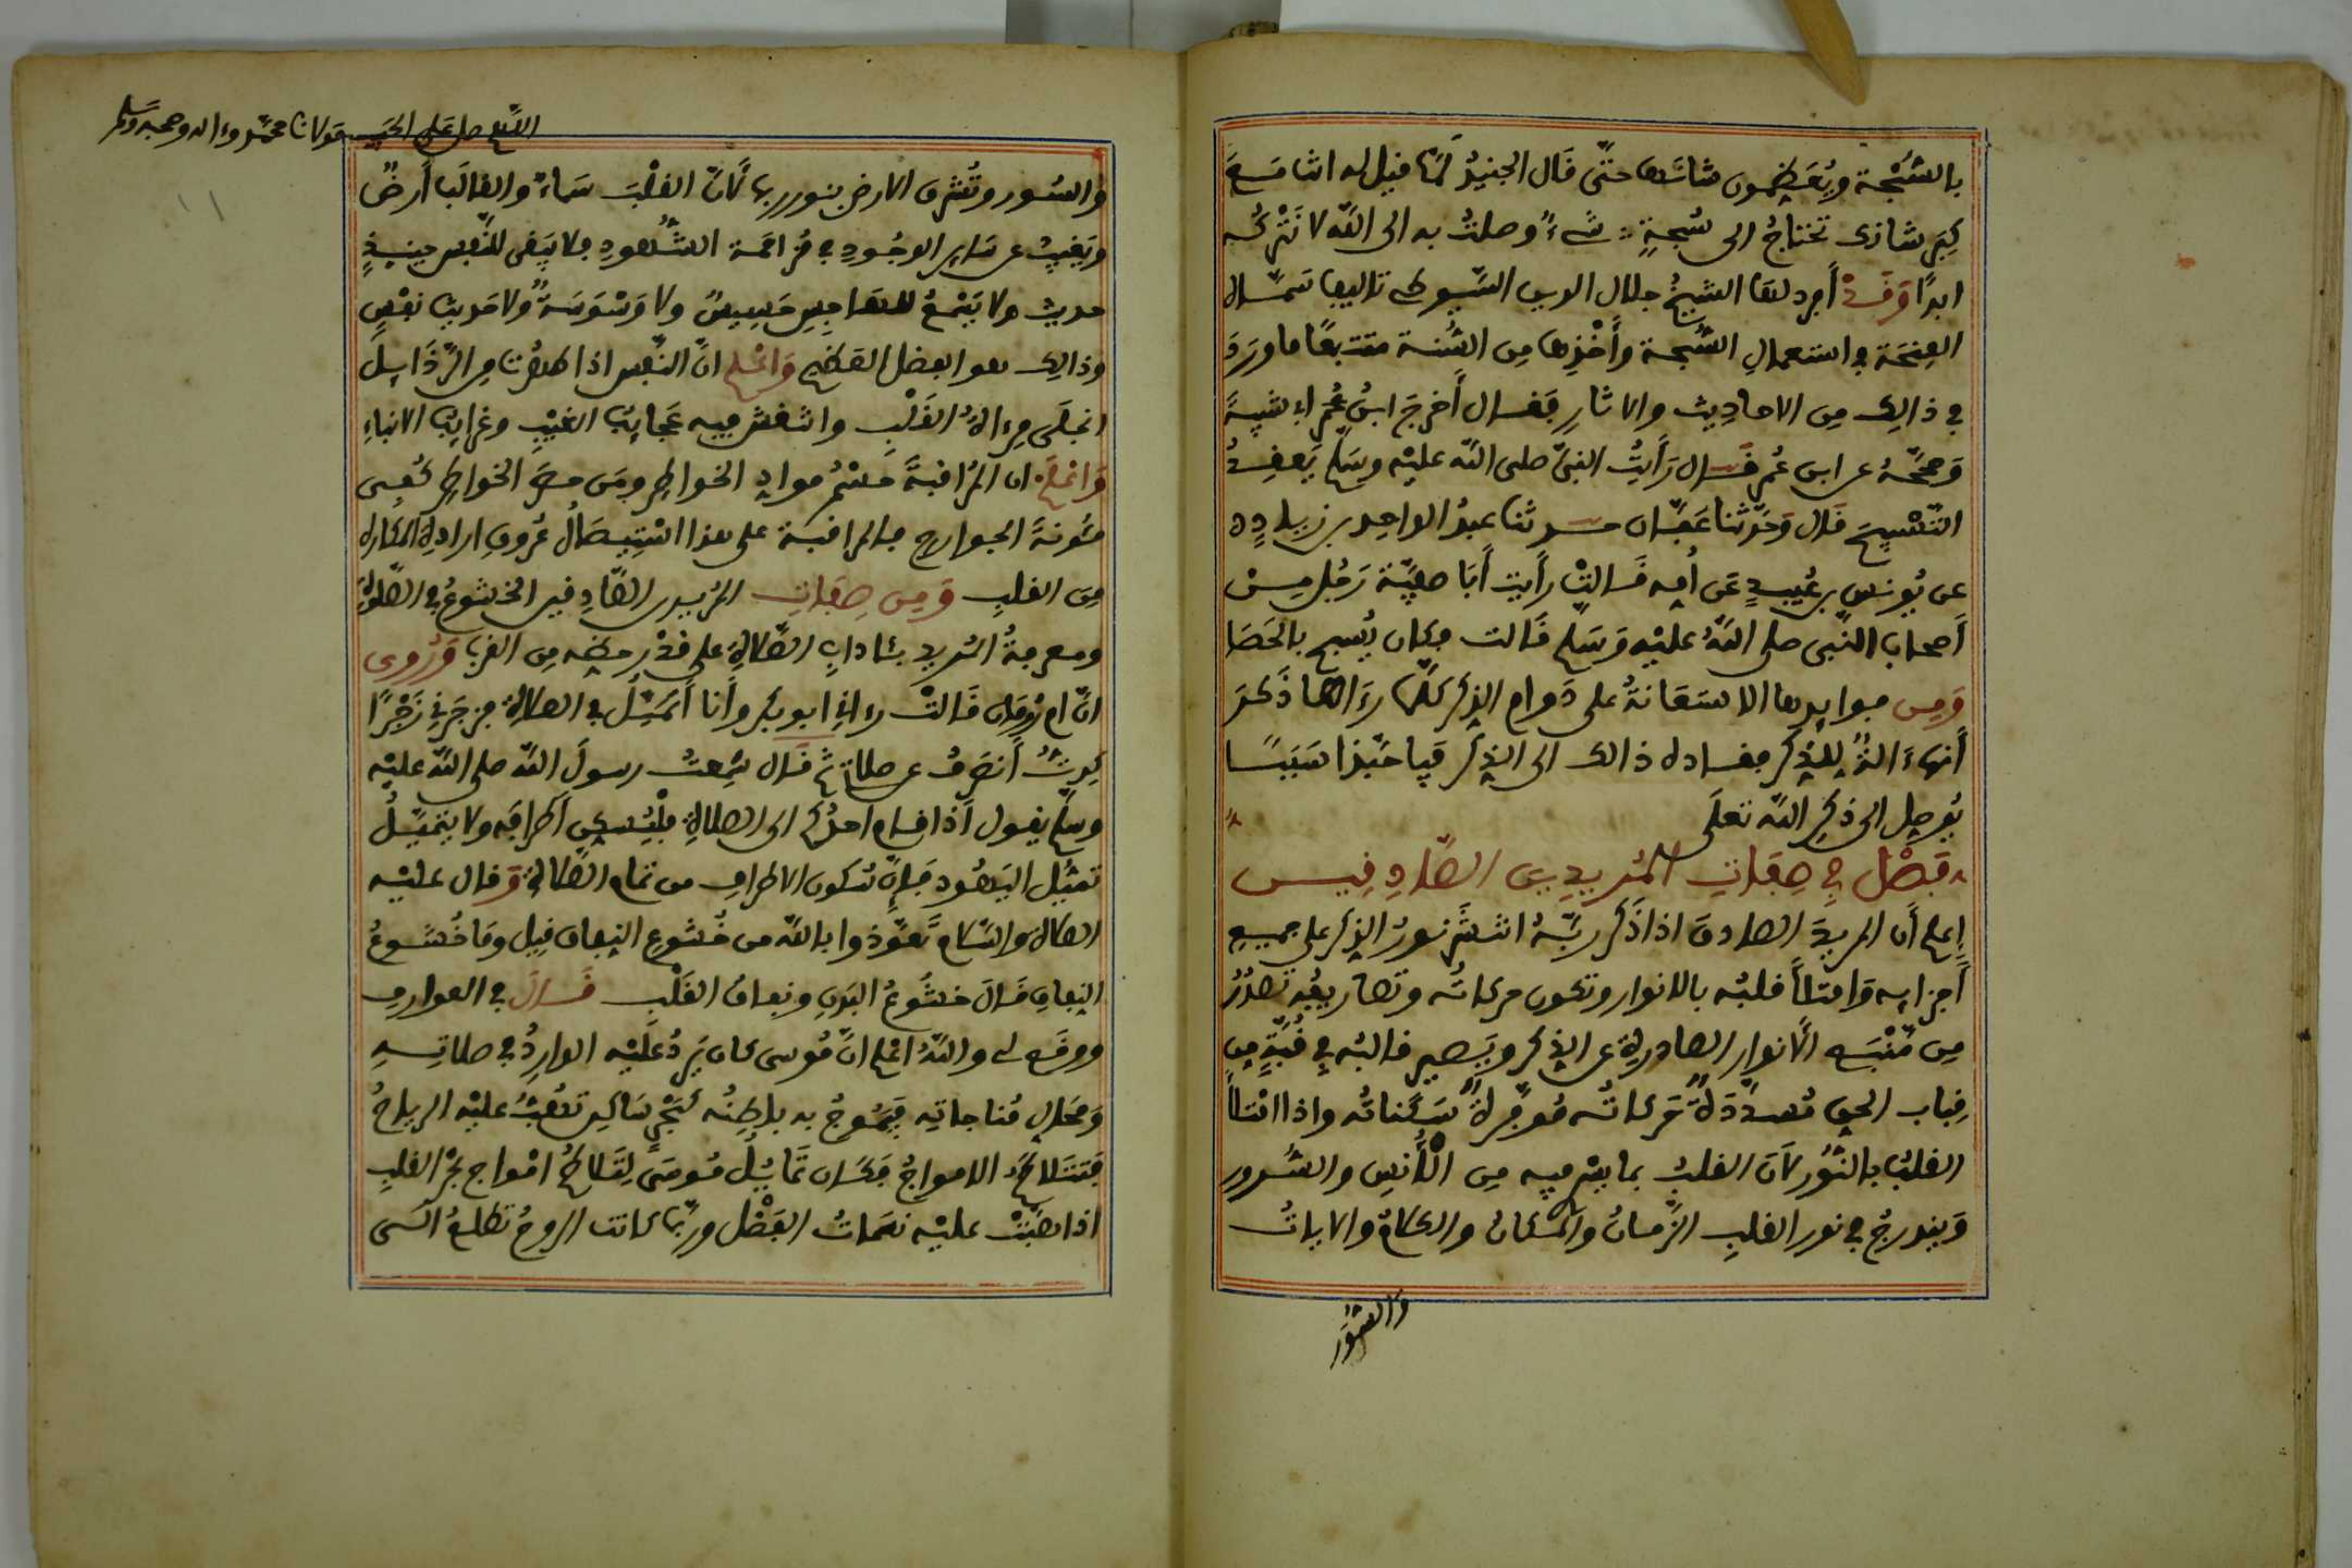 بالسُّبْحة ويُعَظِّمون شأنَها حتّى قال الجنيدُ لمّا قيل له انت مع
كِبَر شانك تحتاجُ الى سُبحةٍ شىءٌ وصلتُ به الى الله لا نَتْركُه
ابدًا وَقَدْ أفرد لها الشيخُ جلال الدين السّيوطى تاليفا سمّاه
المِنْحَة فى استعمالِ السُّبحة وأَخْذِها مِن السُّنة متتبعًا ما ورَدَ
فى ذالك مِن الاحاديث والاثار فقال أَخرجَ ابنُ أبى شيبةَ
وَصححّهُ عن ابن عُمر قال رَأيتُ النبىَّ صلى الله عليْه وسلّم يَعقِدُ
التّسْبيحَ قال وَحَدَّثنا عَفّان حدثنا عبدُ الواحِد بن زيادٍ
عن يُونس بن عُبيدٍ عَن أُمِه قالتْ رأيت أَبَا صفِيَّة رَجُل مِنْ
أَصحاب النّبى صلى اللهُ عليْه وَسَلم قالت وكان يُسبح بالحَصَا
وَمِن فوايدها الاستعانةُ على دَوام الذِكر كلّما رءَاها ذَكرَ
أَنهاءَ الةٌ للذكر فقاده ذالك الى الذِكر فيا حَبّذا سَبَبًا
يُوصِل الى ذكِر الله تعلَى
فصْل فِى صِفَاتِ المُريدِينَ الصَّادِقِيـن
اِعلم أن المريدَ الصادق اذا ذَكر ربَّهُ انتشَر نورُ الذِكر على جميع
أَجزايه وَامتلأَ قلبُه بالانوار وتكون حركاتُه وتصاريفُه تصدُرُ
مِن مَنْبَه الأنوار الصادرة عن الذكر ويَصير قالبُه فى قُبَّةٍ مِن
قِباب الحق مُسدّدةً حَركاتُه مُوَفَّرةً سَكناتُه واذا امْتلأَ
القلبُ بالنُّور لأنّ القلبُ بما يسْر فيه مِن الْأُنْسِ والسُّرور
وَيندرجُ فى نور القلبِ الزَّمانُ والمكانُ والكلامُ والاياتُ
والسّوَر
اللّهم صل عَلى الحَبيب مَولانا محمَّد وءاله وصحبه وسلم
والسُور وتُشرق الارض بنور ربها لأنّ القلْبَ سَماءٌ والقالَب أَرضٌ
ويَغيبُ عن ساير الوجُودِ فى مُزاحَمة الشُّهودِ فلا يَبقى للنّفس حينيذٍ
حديث ولا يَسْمعُ للهَاجِسِ حَسِيسٌ ولا وَسْوَسةٌ ولا حَديثَ نفْسٍ
وذالك هو الفضل العَظيم وَاعْلم انّ النّفس اذا طهُرت من الرَّذَايلِ
انجلَى مِرءاةُ القَلْبِ وانتقش فيه عَجايبُ الغَيْبِ وغرايبُ الانباءِ
وَاعْلم ان المُراقبةَ حسْمُ موادِ الخواطِر ومَن حسَمَ الخواطِر كُفِى
مئونةَ الجوارح فالمراقبة على هذا اسْتِيصَالُ عُروقِ ارادةِ المكاره
مِن القلبِ وَمِن صِفاتِ المُريدِ الصّادِقين الخشُوعُ فى الصّلوٰة
ومعرفةُ المُريد بئادابِ الصّلاة على قدْر حظِه مِن القرب وَرُوِى
انّ ام رُومَان قالتْ رءانى ابو بكر وأَنا أتميّلُ فى الصلاةِ فزجَرَنى زَجْرًا
كدِتُ أنصَرِفُ عن صلاتى ثم قال سمِعتُ رسولَ الله صلى الله عليْه
وسلّم يقول اذا قام احدُكم الى الصلاةِ فلْيُسكِن أَطرافَه ولا يتميّلُ
تميُّل اليَهُود فإنّ سُكون الاطرافِ من تمام الصَّلاة وَقال عليْه
الصلاة والسّلام تَعوّذوا بالله من خُشوعِ النِفاق قيل ومَا خُشوعُ
النِفاقِ قَالَ خشُوعُ البَدنِ ونفاقُ القَلْب قَالَ فى العوارف
ووقع لى واللهُ اعْلم انّ مُوسى كان يَردُ عَليْه الواردُ فى صلاتِـهِ
وَمحَالِ مُناجاتِه فيَموجُ به باطِنُه كبَحْرٍ سَاكِن تهُبُّ عليْه الرياحُ
فتتلاطَمُ الامواجُ فكان تمَايُلُ مُوسَى لِتَلاطُم امْواج بحْر القلبِ
اذا هبّتْ عليْه نسَماتُ الفَضْل وربّما كانت الروحُ تطلعُ الَى